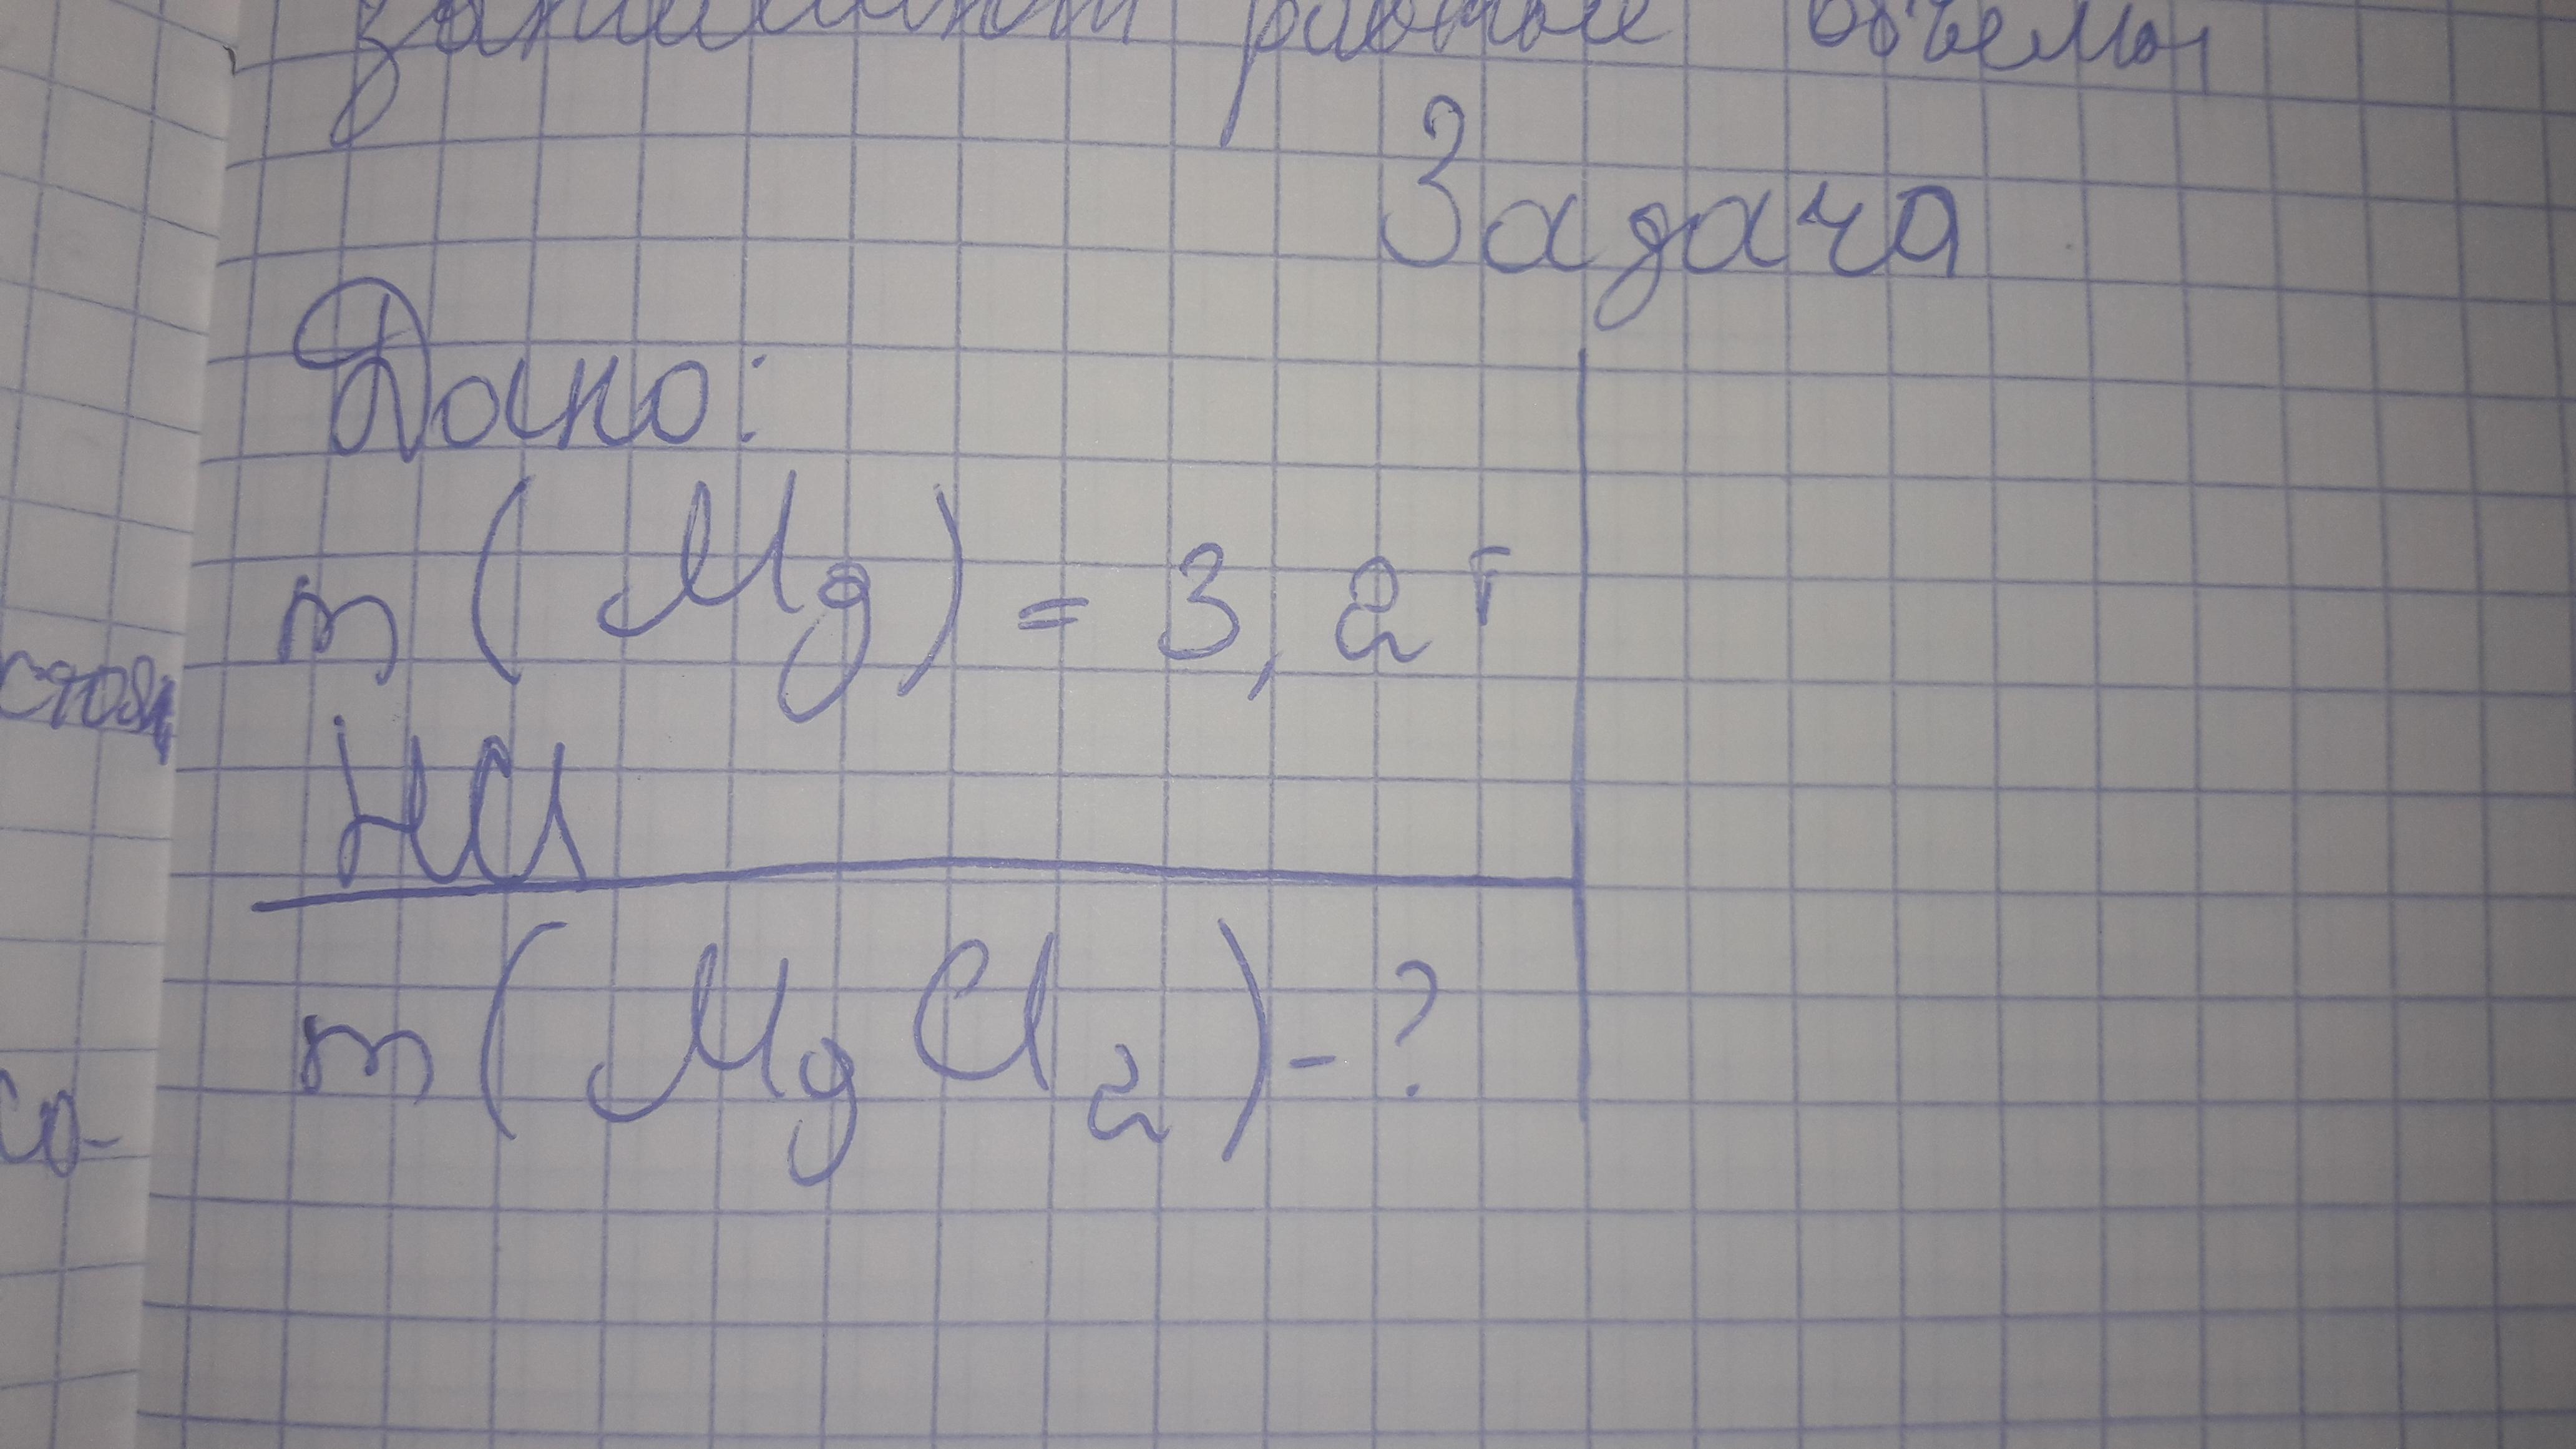 занимают равные объемы
Задача
Дано:
m(Mg) = 3,2г
HCl
m(MgCl₂) - ?
со-